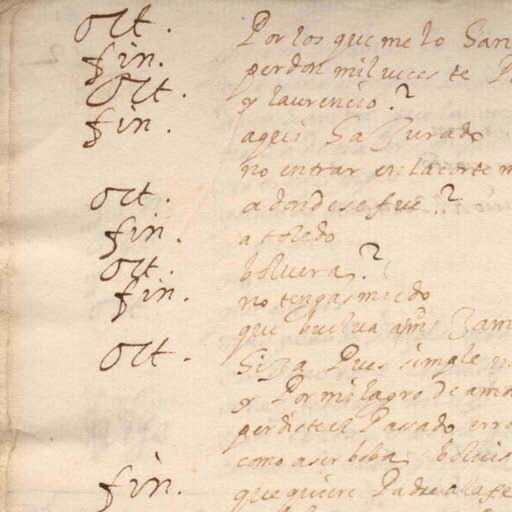 Oct. Por los que me lo han
fin. perdon mil veces te P
Oct. y laurencio?
fin. aqui ha Jurado
no entrar en la corte m
Oct. adonde se fue?
fin. a toledo
Oct. boluera?
fin. no tengas miedo
que buelua a
Oct. Siza Pues simple
y Por milagro de amo
perdiste el Pasado erro
como a ser boba bolueis
fin. que quiere Padre a la fe